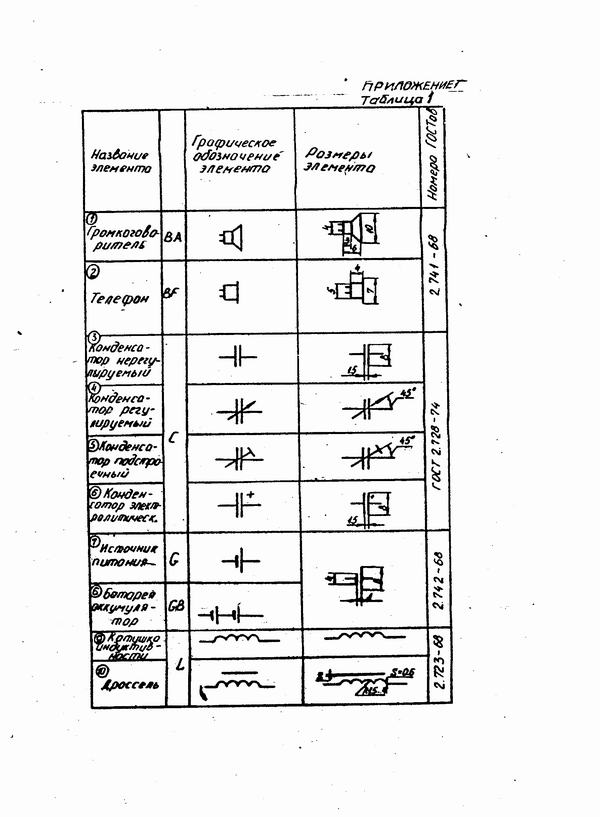 ПРИЛОЖЕНИЕ 1
Таблица 1
Название
элемента
Графическое
обозначение
элемента
Размеры
элемента
Номера ГОСТов
① Громкогово-
ритель
BA
4
10
6
② Телефон
BF
4
5
7
2.741-68
③ Конденса-
тор нерегу-
лируемый
1,5
8
④ Конденса-
тор регу-
лируемый
45°
C
⑤ Конденса-
тор подстро-
ечный
45°
⑥ Конден-
сатор элект-
ролитическ.
+
1,5
8
ГОСТ 2.728-74
⑦ Источник
питания
G
⑧ Батарея
аккумуля-
тор
GB
2.742-68
⑨ Катушка
индуктив-
ности
L
⑩ Дроссель
S=0,6
2.723-68